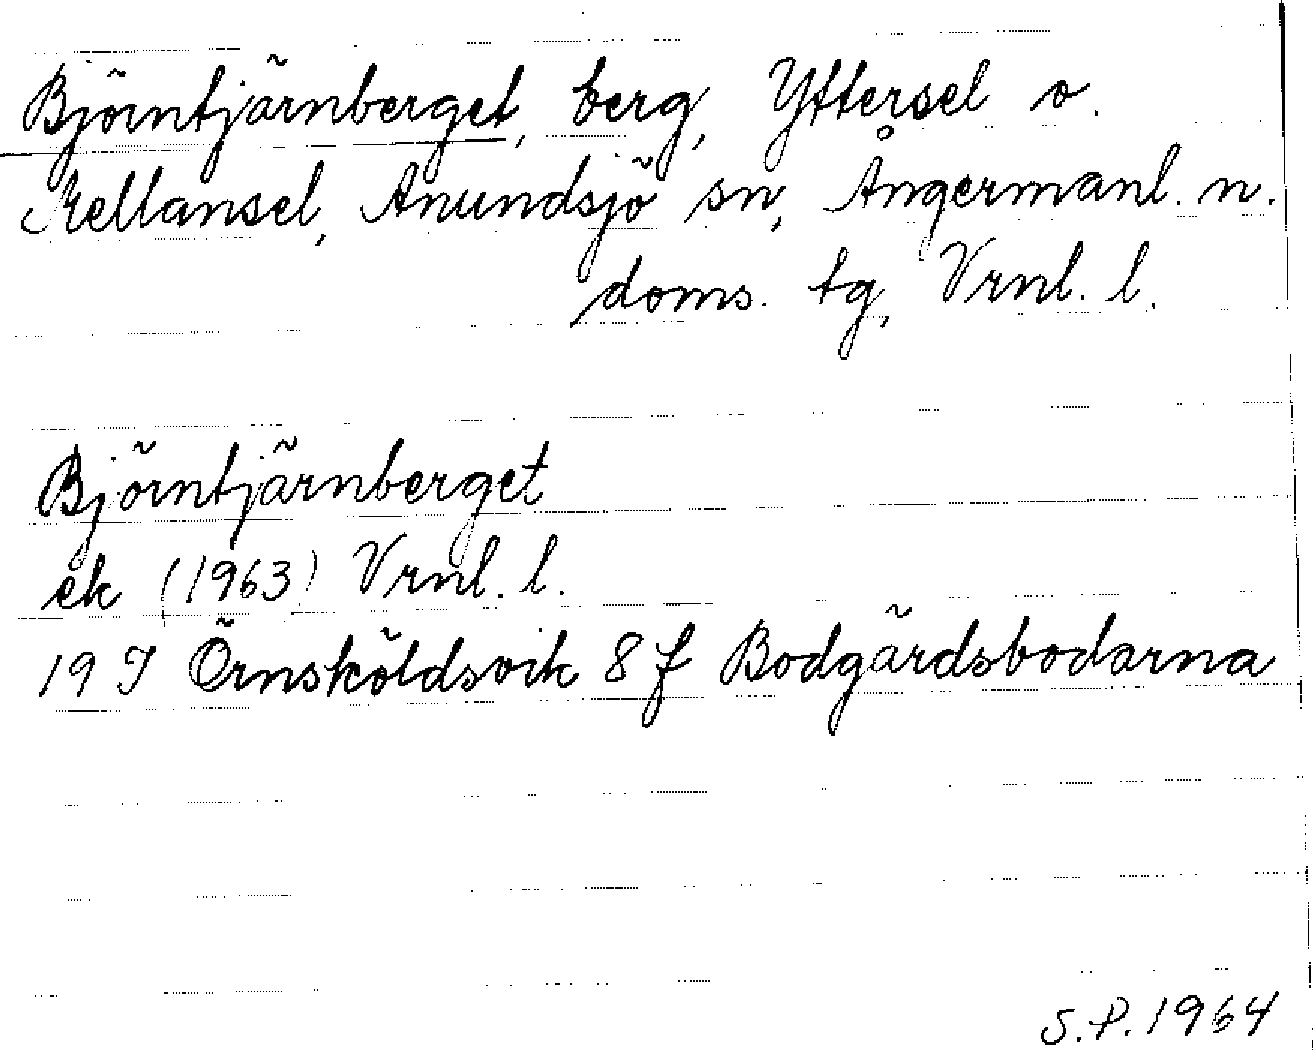 Björntjärnberget, berg, Yttersel o.
Mellansel, Anundsjö sn, Ångermanl. n.
doms. tg, Vrnl. l.
Björntjärnberget
ek (1963) Vrnl. l.
19 I Örnsköldsvik 8 f Bodgårdsbodarna
S.P. 1964